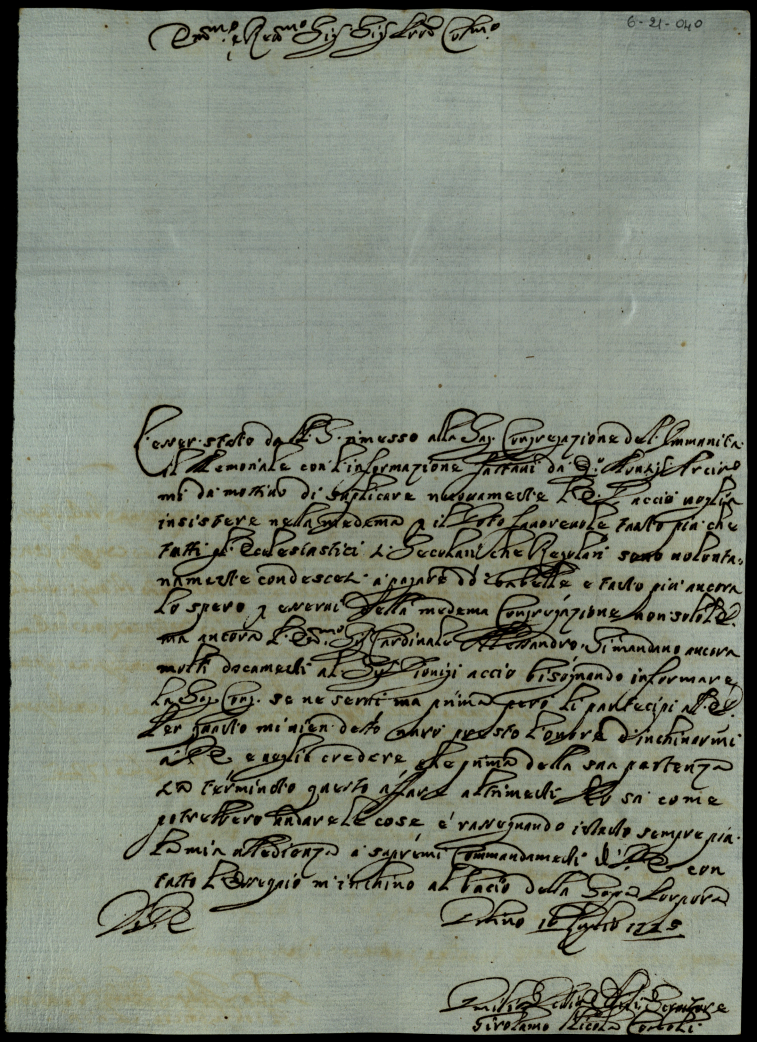 6-21-040
Em.mo e Rev.mo Sig. Sig. Pron Col.mo
L'esser stato da V. S. rimesso alla Sag. Congregazione dell'Immunità
il Memoriale con l'informazione fattami da
mi dà motivo di suplicare nuovamente V. E. acciò voglia
insistere nella medema p il Voto favorevole tanto più che
tutti gl'Ecclesiastici sì Secolari che Regolari sono volonta-
riamente condescesi à pagare dd Gabelle e tanto più ancora
lo spero p esservi nella medema Congregazione non solo V. E.
ma ancora l'Em.mo Sig. Cardinale Alessandro. Si mandano ancora
molti documenti al Sig. Dionigi acciò bisognando informare
la Sag. Cong. se ne servi ma prima però li partecipi a V. E.
Per quanto mi vien detto avrò presto l'onore d'inchinarmi
à V. E. e voglio credere che prima della sua partenza
sarà terminato questo affare altrimenti Dio sà come
potrebbero andare le cose e rassegnando intanto sempre più
la mia obbedienza a supremi Commandamenti di V. E. con
tutto l'ossequio m'inchino al bacio della Sagra Porpora
Di V. E. Urbino 16 Luglio 1725
Umiliss. Devotiss. Servitore
Girolamo Nicola